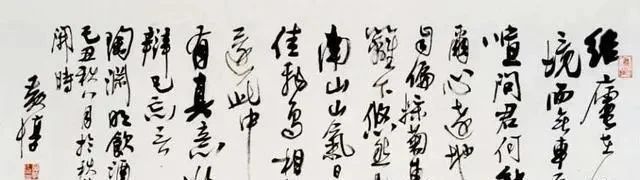 結廬在
境而無車
喧問君何能
爾心遠地
自偏採菊東
籬下悠然
南山山氣日
佳飛鳥相
還此中
有真意欲
辯已忘言
陶淵明飲酒
己丑秋八月於
開時